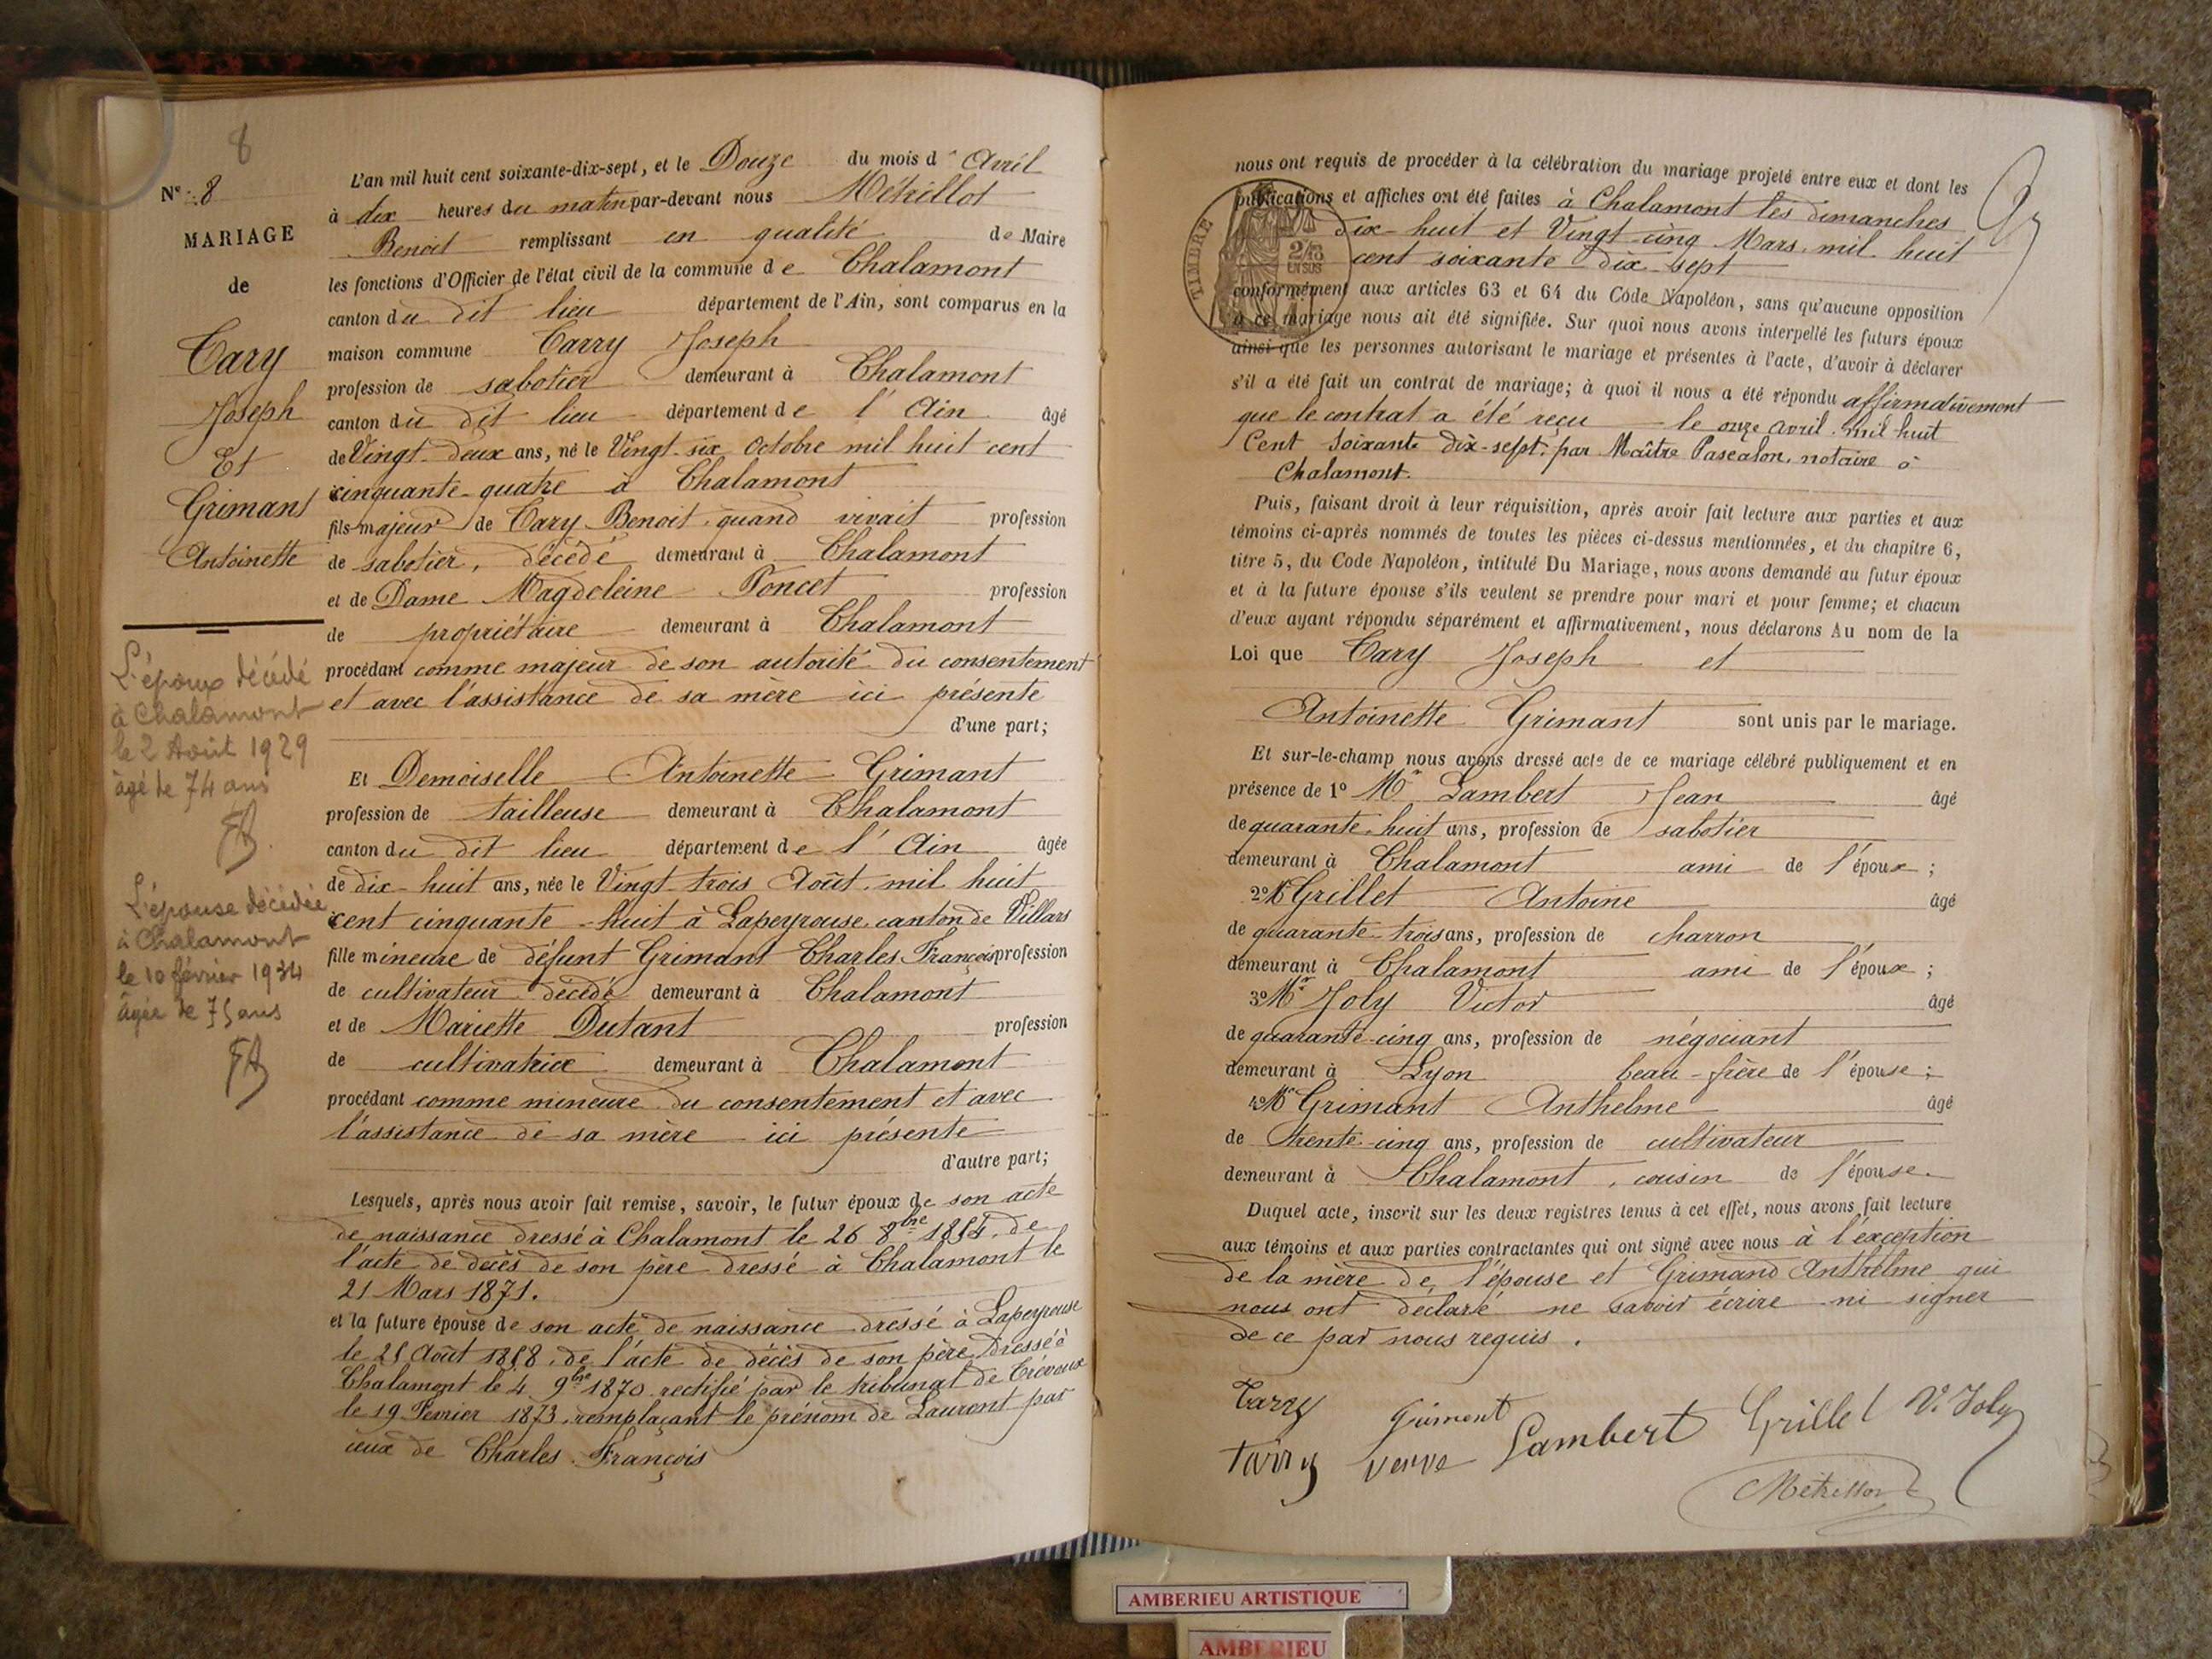 8
N° 8
MARIAGE
de
Tary
Joseph
Et
Grimant
Antoinette
L'époux décédé
à Chalamont
le 2 Août 1929
âgé de 74 ans
L'épouse décédée
à Chalamont
le 10 février 1934
âgée de 75 ans
L'an mil huit cent soixante-dix-sept, et le Douze du mois d'Avril
à dix heures du matin par-devant nous Métrillot
Benoit remplissant en qualité de Maire
les fonctions d'Officier de l'état civil de la commune de Chalamont
canton du dit lieu département de l'Ain, sont comparus en la
maison commune Tarry Joseph
profession de sabotier demeurant à Chalamont
canton du dit lieu département de l'Ain âgé
de Vingt-deux ans, né le Vingt-six Octobre mil huit cent
cinquante-quatre à Chalamont
fils majeur de Tary Benoit, quand vivait profession
de sabotier, décédé demeurant à Chalamont
et de Dame Magdeleine Poncet profession
de propriétaire demeurant à Chalamont
procédant comme majeur de son autorité du consentement
et avec l'assistance de sa mère ici présente
d'une part;
Et Demoiselle Antoinette Grimant
profession de tailleuse demeurant à Chalamont
canton du dit lieu département de l'Ain âgée
de dix-huit ans, née le Vingt-trois Août mil huit
cent cinquante-huit à Lapeyrouse canton de Villars
fille mineure de défunt Grimant Charles François profession
de cultivateur décédé demeurant à Chalamont
et de Mariette Dutant profession
de cultivatrice demeurant à Chalamont
procédant comme mineure du consentement et avec
l'assistance de sa mère ici présente
d'autre part;
Lesquels, après nous avoir fait remise, savoir, le futur époux de son acte
de naissance dressé à Chalamont le 26 8bre 1854, de
l'acte de décès de son père dressé à Chalamont le
21 Mars 1871.
et la future épouse de son acte de naissance dressé à Lapeyrouse
le 25 Août 1858, de l'acte de décès de son père dressé à
Chalamont le 4 9bre 1870 rectifié par le tribunal de Trévoux
le 19 Février 1873, remplaçant le prénom de Laurent par
ceux de Charles François
nous ont requis de procéder à la célébration du mariage projeté entre eux et dont les
publications et affiches ont été faites à Chalamont les dimanches
dix-huit et Vingt-cinq Mars mil huit
cent soixante-dix-sept
conformément aux articles 63 et 64 du Code Napoléon, sans qu'aucune opposition
à ce mariage nous ait été signifiée. Sur quoi nous avons interpellé les futurs époux
ainsi que les personnes autorisant le mariage et présentes à l'acte, d'avoir à déclarer
s'il a été fait un contrat de mariage; à quoi il nous a été répondu affirmativement
que le contrat a été reçu le onze avril mil huit
Cent Soixante Dix-sept, par Maître Pascalon, notaire à
Chalamont.
TIMBRE
Puis, faisant droit à leur réquisition, après avoir fait lecture aux parties et aux
témoins ci-après nommés de toutes les pièces ci-dessus mentionnées, et du chapitre 6,
titre 5, du Code Napoléon, intitulé Du Mariage, nous avons demandé au futur époux
et à la future épouse s'ils veulent se prendre pour mari et pour femme; et chacun
d'eux ayant répondu séparément et affirmativement, nous déclarons Au nom de la
Loi que Tary Joseph et
Antoinette Grimant sont unis par le mariage.
Et sur-le-champ nous avons dressé acte de ce mariage célébré publiquement et en
présence de 1° Mr Lambert Jean âgé
de quarante-huit ans, profession de sabotier
demeurant à Chalamont ami de l'époux;
2° Mr Grillet Antoine âgé
de quarante-trois ans, profession de charron
demeurant à Chalamont ami de l'époux;
3° Mr Joly Victor âgé
de quarante-cinq ans, profession de négociant
demeurant à Lyon beau-frère de l'épouse;
4° Mr Grimant Anthelme âgé
de trente-cinq ans, profession de cultivateur
demeurant à Chalamont, cousin de l'épouse.
Duquel acte, inscrit sur les deux registres tenus à cet effet, nous avons fait lecture
aux témoins et aux parties contractantes qui ont signé avec nous à l'exception
de la mère de l'épouse et Grimand Anthelme qui
nous ont déclaré ne savoir écrire ni signer
de ce par nous requis.
Tarry Griment Lambert Grillet V. Joly
Tarry veuve
Métrillot
AMBERIEU ARTISTIQUE
AMBERIEU